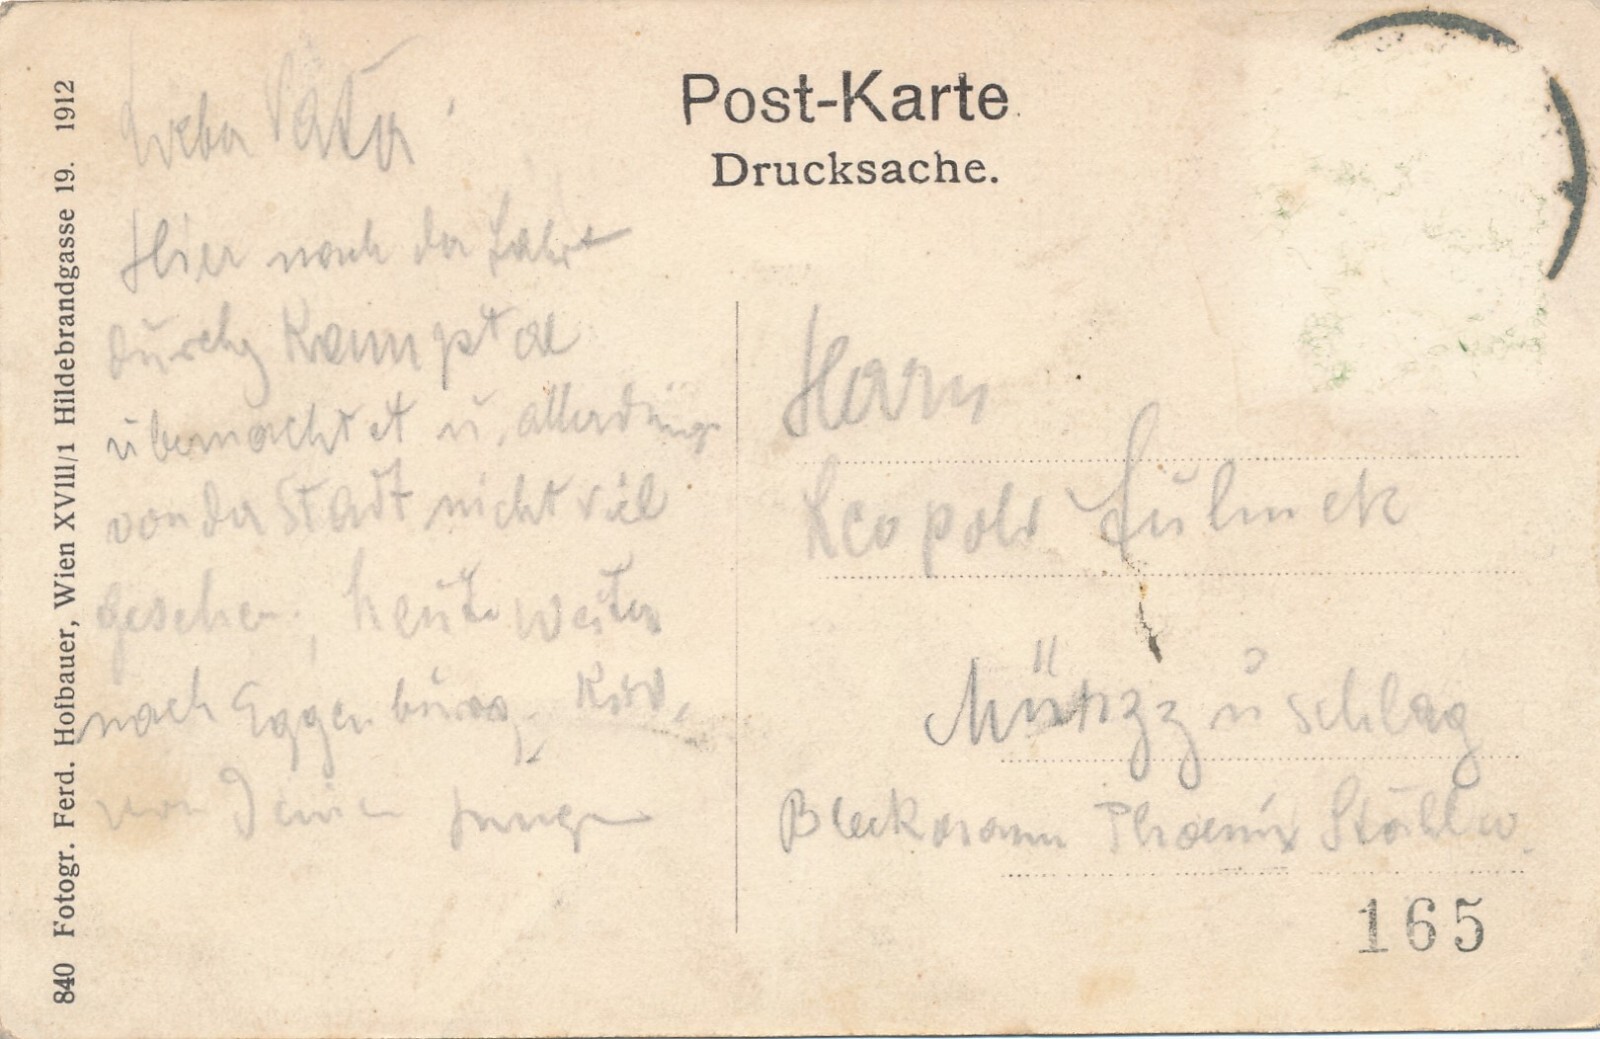 Post-Karte
Drucksache.
840 Fotogr. Ferd. Hofbauer, Wien XVIII/1 Hildebrandgasse 19. 1912
Lieber Vater!
Hier nach der Fahrt
durchs Kamptal
übernachtet u. allerdings
von der Stadt nicht viel
gesehen, heute weiter
nach Eggenburg.
von Deinem Jungen
Herrn
Leopold
Mürzzuschlag
Bleckmann Phoenix Stahlw.
165